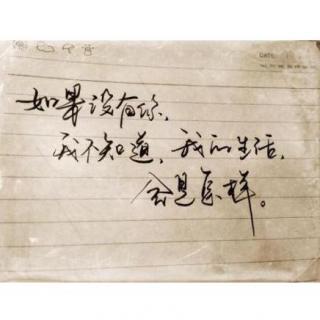 DATE
如果没有你,
我不知道,我的生活,
会是怎样。